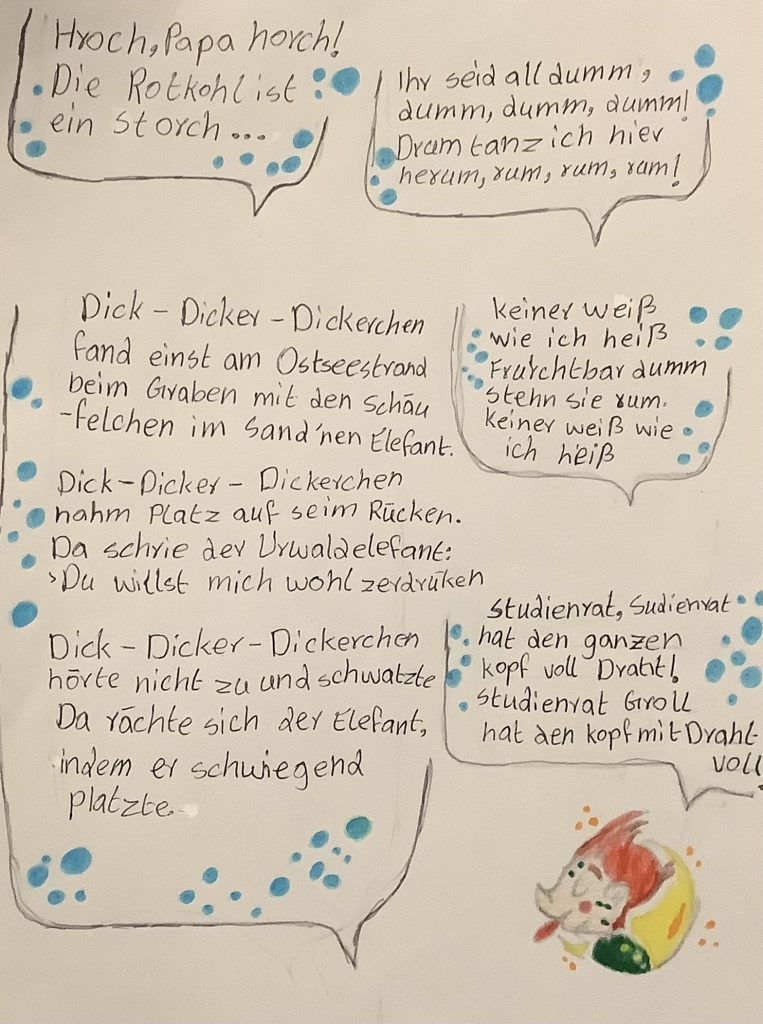 Hroch, Papa horch!
Die Rotkohl ist
ein Storch...
Ihr seid all dumm,
dumm, dumm, dumm!
Drum tanz ich hier
herum, rum, rum, rum!
Dick - Dicker - Dickerchen
fand einst am Ostseestrand
beim Graben mit den Schäu
-felchen im Sand'nen Elefant.
Dick - Dicker - Dickerchen
nahm Platz auf seim Rücken.
Da schrie der Urwaldelefant:
>Du willst mich wohl zerdrüken
Dick - Dicker - Dickerchen
hörte nicht zu und schwatzte
Da rächte sich der Elefant,
indem er schwiegend
platzte.
keiner weiß
wie ich heiß
Frurchtbar dumm
stehn sie rum.
keiner weiß wie
ich heiß
Studienrat, Sudienrat
hat den ganzen
kopf voll Draht!
Studienrat Groll
hat den kopf mit Draht
voll